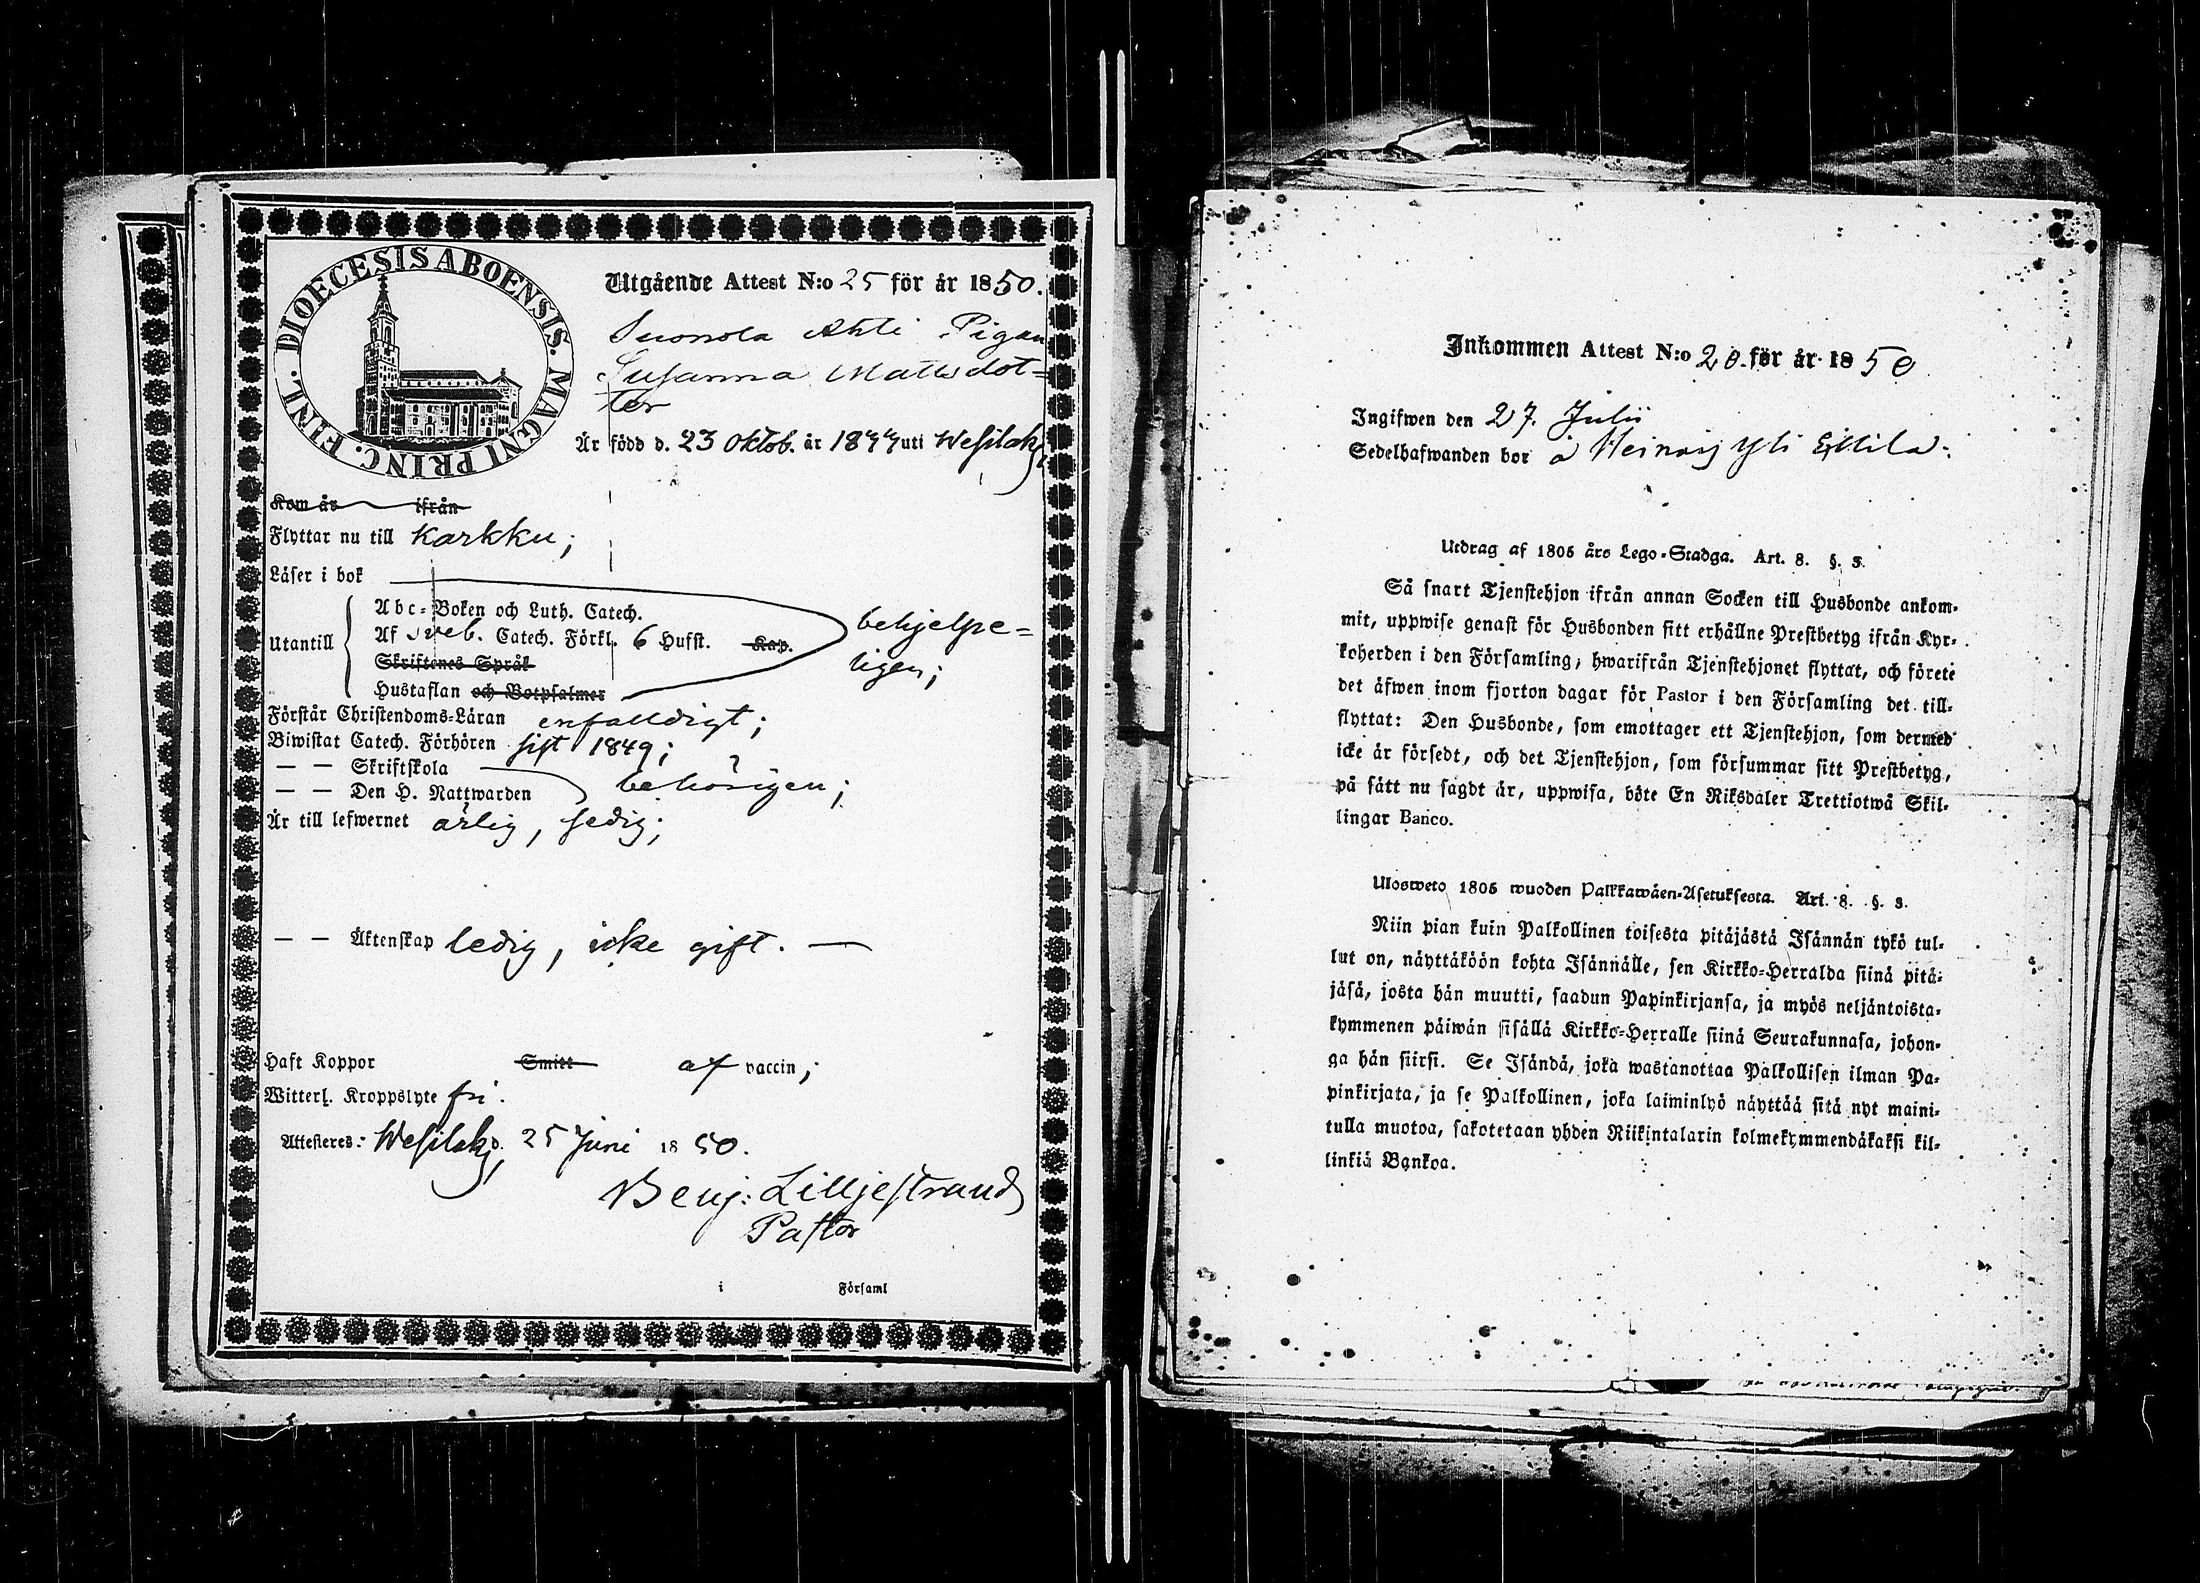 DIOECESIS ABOENSIS. MAGNI PRINC. FINL.
Utgående Attest N:o 25 för år 1850.
Suonola Ahti Pigan
Susanna Mattsdot=
ter
Är född d. 23 Oktob. år 18 uti Wesilaks
Kom år ifrån
Flyttar nu till Karkku;
Läser i bok
Utantill
Abc=Boken och Luth. Catech.
Af Sveb. Catech. Förkl. 6 Hufst. Kap.
Skriftenes Språk
Hustaflan och Botpsalmer
behjelpe=
ligen;
Förstår Christendoms=Läran enfalldigt;
Biwistat Catech. Förhören sist 1849;
— — Skriftskola
— — Den H. Nattwarden
behörigen;
Är till lefwernet ärlig, sedig;
— — Äktenskap ledig, icke gift. —
Haft Koppor Smitt af vaccin;
Witterl. Kroppslyte fri.
Attesteres: Wesilaks d. 25 Juni 1850.
Benj: Lilljestrand
Pastor
i Församl
Inkommen Attest N:o 20. för år 1850
Ingifwen den 27. Julii
Sedelhafwanden bor å Heinoo Yli Ettila.
Utdrag af 1805 års Lego=Stadga. Art. 8. §. 3.
Så snart Tjenstehjon ifrån annan Socken till Husbonde ankom=
mit, uppwise genast för Husbonden sitt erhållne Prestbetyg ifrån Kyr=
koherden i den Församling, hwarifrån Tjenstehjonet flyttat, och förete
det äfwen inom fjorton dagar för Pastor i den Församling det till=
flyttat: Den Husbonde, som emottager ett Tjenstehjon, som dermed
icke är försedt, och det Tjenstehjon, som försummar sitt Prestbetyg,
på sätt nu sagdt är, uppwisa, böte En Riksdaler Trettiotwå Skil=
lingar Banco.
Ulosweto 1805 wuoden Palkkawäen=Asetuksesta. Art. 8. §. 3.
Niin pian kuin Palkollinen toisesta pitäjästä Isännän tykö tul=
lut on, näyttäköön kohta Isännälle, sen Kirkko=Herralda siinä pitä=
jäsä, josta hän muutti, saadun Papinkirjansa, ja myös neljäntoista=
kymmenen päiwän sisällä Kirkko=Herralle siinä Seurakunnasa, johon=
ga hän siirsi. Se Isändä, joka wastanottaa Palkollisen ilman Pa=
pinkirjata, ja se Palkollinen, joka laiminlyö näyttää sitä nyt maini=
tulla muotoa, sakotetaan yhden Riikintalarin kolmekymmendäkaksi kil=
linkiä Bankoa.